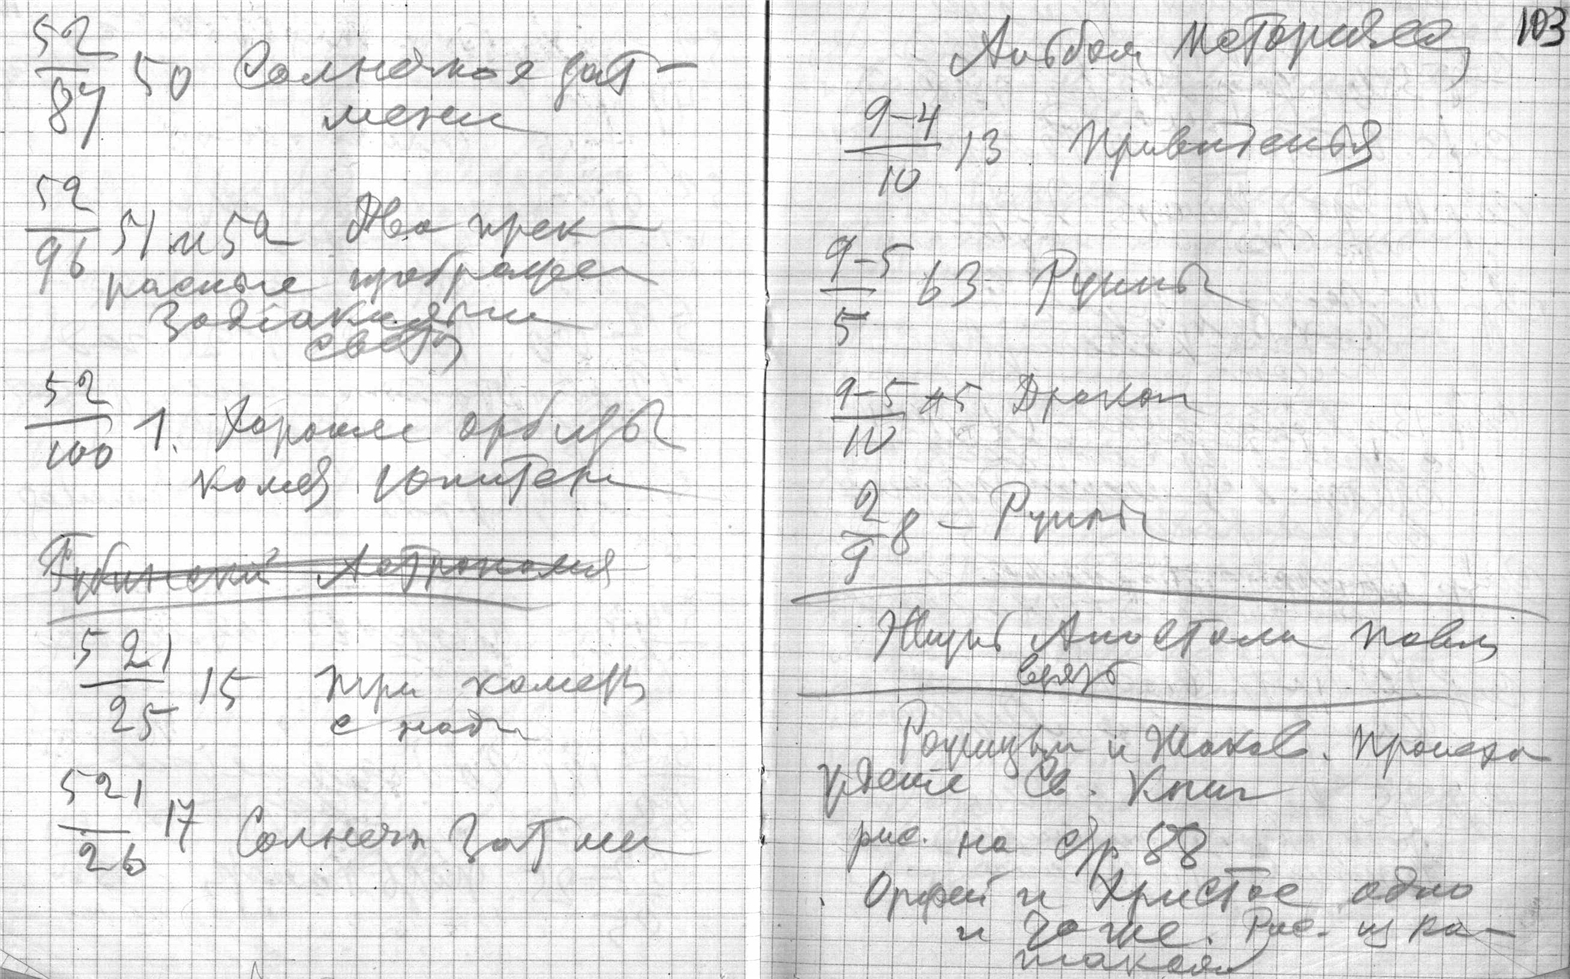 52
87 50 Солнечное зат-
мени
52
96 51 и 52 Два прек-
расные изображен
Зодiакальн
света
52
100 1. Хорошие орбиты
комет Юпитера
Астрономия
521
25 15 три кометы
с над
521
26 17 Солнечн Затме
103
Альбом
9-4
10 13 Привидения
9-5
5 63 Руины
9-5
10 45 Дракон
2
9 8 – Руины
Жизнь Апостола Павл
связь
и Жаков. Происхо
ждение Св. Книг
рис. на стр 88
Орфей и Христос одно
и то же. Рис. из ка-